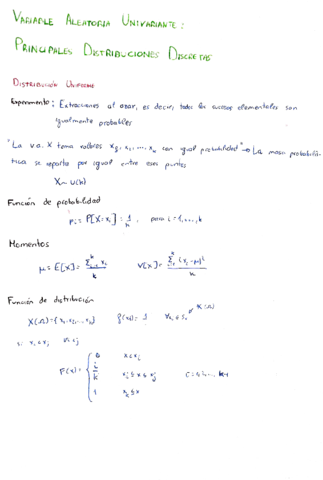 VARIABLE ALEATORIA UNIVARIANTE:
PRINCIPALES DISTRIBUCIONES DISCRETAS
DISTRIBUCIÓN UNIFORME
Experimento: Extracciones al azar, es decir, todos los sucesos elementales son
igualmente probables
"La v.a. X toma valores x₁, x₂, ..., xₖ con igual probabilidad" → La masa probabilís-
tica se reparte por igual entre esos puntos
X ~ U(k)
Función de probabilidad
pᵢ = P[X=xᵢ] = 1/k, para i=1,...,k
Momentos
μ = E[X] = Σᵢ₌₁ᵏ xᵢ / k V[X] = Σᵢ₌₁ᵏ (xᵢ-μ)² / k
Función de distribución
X(Ω) = {x₁, x₂, ..., xₖ}
si xᵢ < xⱼ ∀i<j
F(x) = { 0 x < x₁
i/k xᵢ ≤ x < i = 1, ... k-1
1 xₖ ≤ x